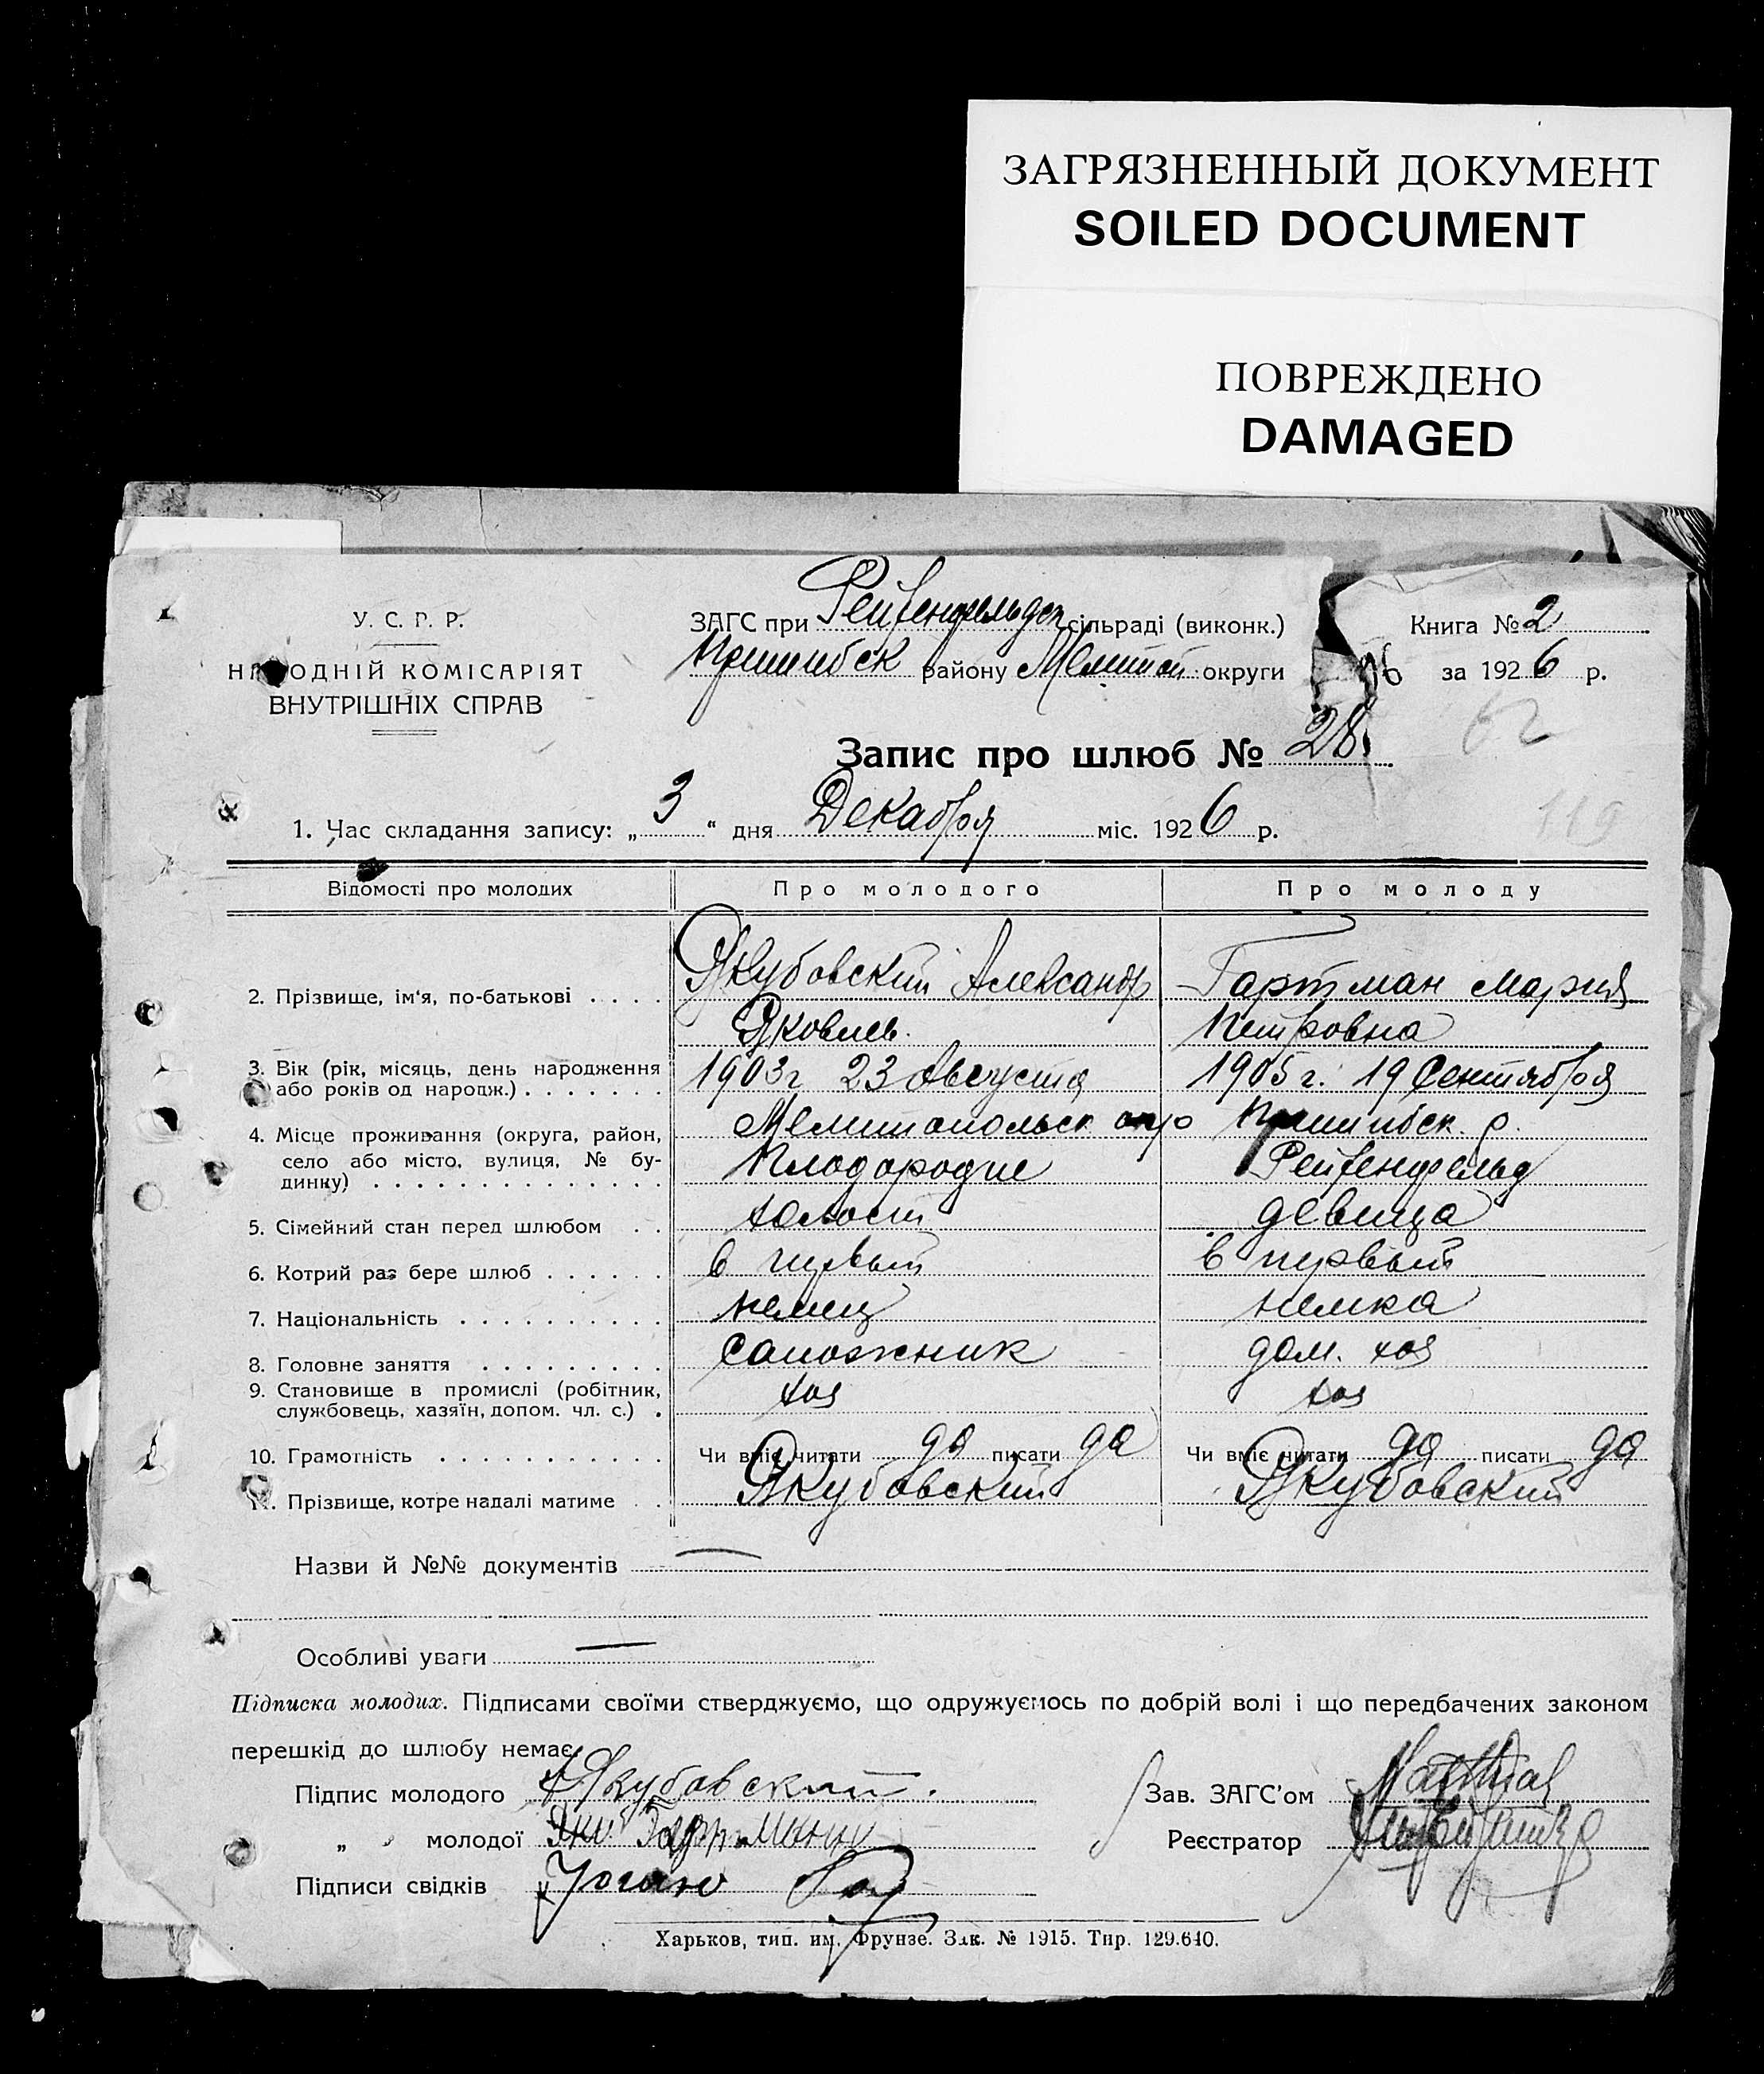 ЗАГРЯЗНЕННЫЙ ДОКУМЕНТ
SOILED DOCUMENT
ПОВРЕЖДЕНО
DAMAGED
У. С. Р. Р.
НАРОДНІЙ КОМІСАРІЯТ
ВНУТРІШНІХ СПРАВ
ЗАГС при Рейхенфельдск сільраді (виконк.)
Пришибск району Мелитоп округи
Книга № 2
за 1926 р.
62
Запис про шлюб № 28
119
1. Час складання запису: „3“ дня Декабря міс. 1926 р.
Відомості про молодих Про молодого Про молоду
2. Прізвище, ім'я, по-батькові . . . . Якубовский Александр Гартман Мария
Яковлев. Петровна
3. Вік (рік, місяць, день народження або років од народж.) . . . . . . . 1903 г 23 Августа 1905 г. 19 Сентября
4. Місце проживання (округа, район, село або місто, вулиця, № будинку) . . . . . . . . . . . . . . Мелитопольск окр Пришибск. р.
Плодородие Рейхенфельд
5. Сімейний стан перед шлюбом . . холост девица
6. Котрий раз бере шлюб . . . . . . в первый в первый
7. Національність . . . . . . . . . . немец немка
8. Головне заняття . . . . . . . . . сапожник дом. хоз
9. Становище в промислі (робітник, службовець, хазяїн, допом. чл. с.) . хоз хоз
10. Грамотність . . . . . . . . . . . Чи вміє читати да писати да Чи вміє читати да писати да
11. Прізвище, котре надалі матиме . . Якубовский Якубовский
Назви й №№ документів —
Особливі уваги —
Підписка молодих. Підписами своїми стверджуємо, що одружуємось по добрій волі і що передбачених законом
перешкід до шлюбу немає.
Підпис молодого Якубовский.
Зав. ЗАГС'ом
„ „ молодої Гартманн
Реєстратор
Підписи свідків
Харьков, тип. им. Фрунзе. Зак. № 1915. Тир. 129.640.